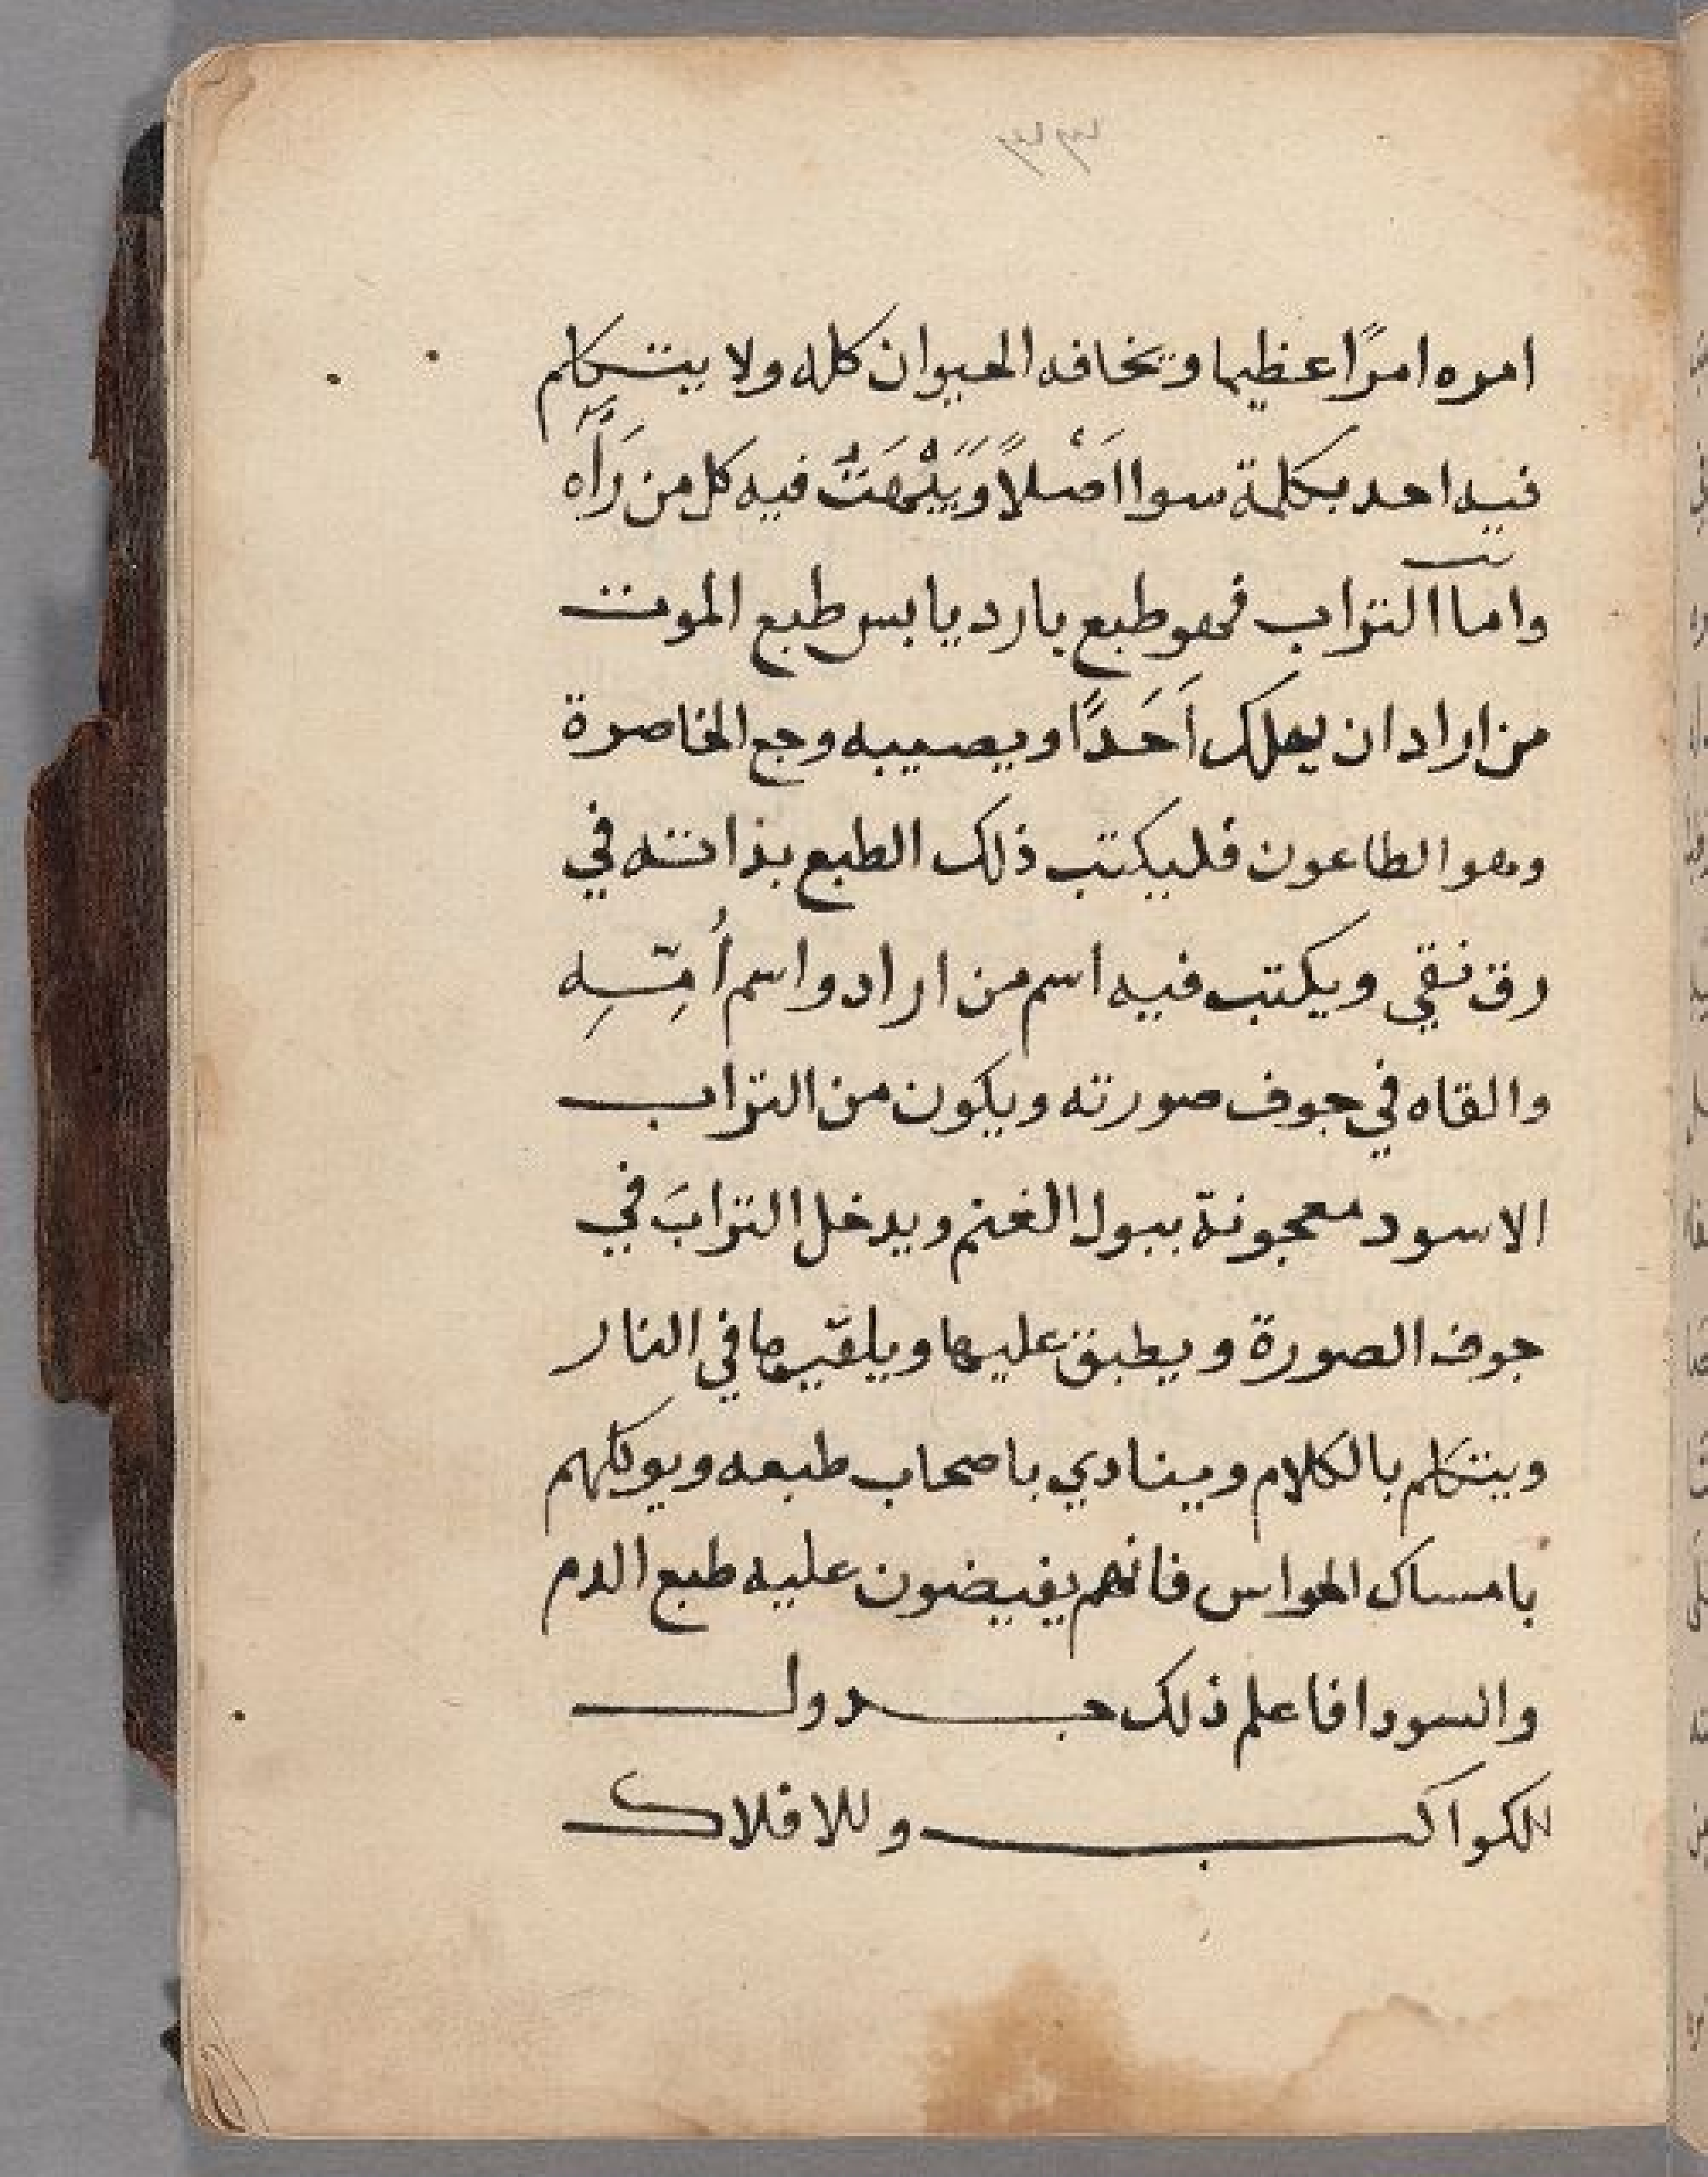 امره امرًا عظيما ويخافه الحيوان كله ولا يتكلم
فيه احد بكلمة سوا اَصْلاً وَيَبْهَتُ فيه كل من رَأَه
واما التراب فهو طبع بارد يابس طبع الموت
من اراد ان يهلك اَحَدًا ويصيبه وجع الخاصرة
وهو الطاعون فليكتب ذلك الطبع بذاته في
رق نقي ويكتب فيه اسم من اراد واسم اُمِّهِ
والقاه في جوف صورته ويكون من التراب
الاسود معجونة ببول الغنم ويدخل الترابَ في
جوف الصورة ويطبق عليها ويلقيها في النار
ويتكلم بالكلام وينادي باصحاب طبعه ويوكلهم
بامساك الحواس فانهم يفيضون عليه طبع الدم
والسودا فاعلم ذلك جدول
للكواكب وللافلاك